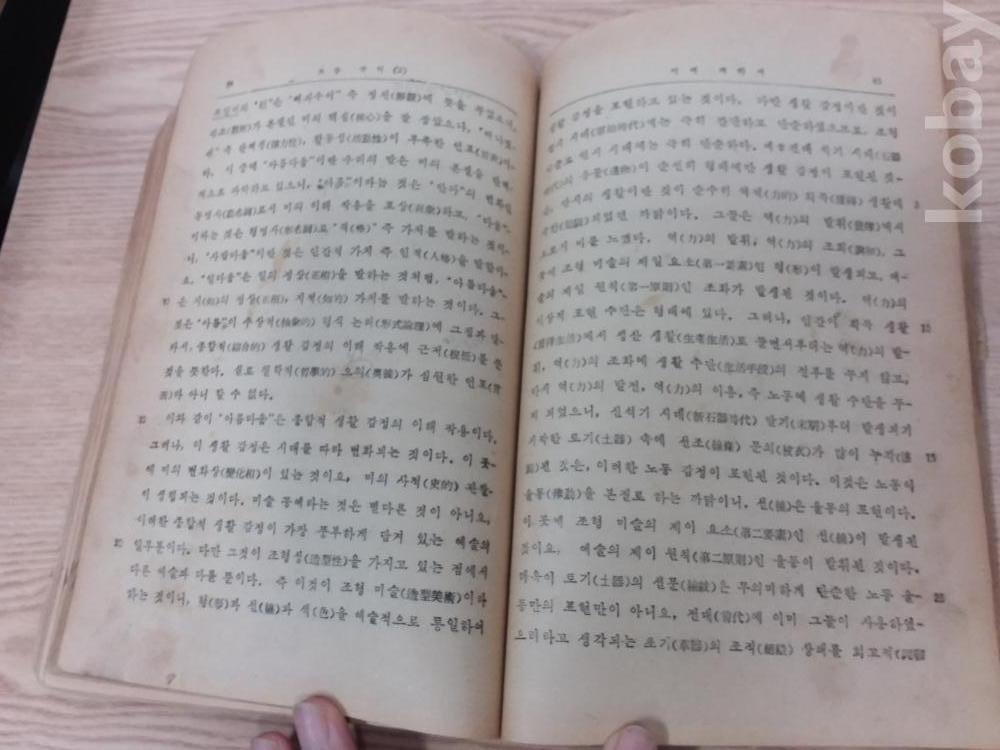 고등 국어 (2)
"란"은 "여자수이" 즉 정서에 뜻을 두었으나,
가 본질인 미의 핵심(核心)을 잘 잡았으나,
즉 탄력성(彈力性), 활동성(活動性)이 부족한
이 중에 "아름다움"이란 우리의 말은 미의 본질을
적으로 파악하고 있으니, "아름"이라는 것은 "안다"의 변화인
동명사(動名詞)로서 미의 이해 작용을 표상(表象)하고, "다움"
이라는 것은 형명사(形名詞)로 "격(格)" 즉 가치를 말하는 것이
니, "사람다움"이란 것은 인간적 가치 즉 인격(人格)을 말함이
요, "일다움"은 일의 정상(正相)을 말하는 것처럼, "아름다움"
10 은 지(知)의 정상(正相), 지적(知的) 가치를 말하는 것이다. 그
것은 "아름"이 추상적(抽象的) 형식 논리(形式論理)에 그침과 달
라서, 종합적(綜合的) 생활 감정의 이해 작용에 근저(根柢)를 둔
것을 뜻한다. 실로 철학적(哲學的) 오의(奧義)가 심원한
라 아니 할 수 없다.
15 이와 같이 "아름다움"은 종합적 생활 감정의 이해 작용이다.
그러나, 이 생활 감정은 시대를 따라 변화되는 것이다. 이 곳
에 미의 변화상(變化相)이 있는 것이요, 미의 사적(史的) 관찰
이 성립되는 것이다. 미술 공예라는 것은 별다른 것이 아니요,
이러한 종합적 생활 감정이 가장 풍부하게 담겨 있는 예술의
20 일부문이다. 다만 그것이 조형성(造型性)을 가지고 있는 점에서
다른 예술과 다를 뿐이다. 즉 이것이 조형 미술(造型美術)이라
하는 것이니, 형(形)과 선(線)과 색(色)을 예술적으로 통일하여
생활 감정을 표현하고 있는 것이다. 다만 생활 감정이란 것이
원시 시대(原始時代)에는 극히 간단하고 단순하였으므로, 조형
미술로 원시 시대에는 극히 단순하다. 예컨대 석기 시대(石器
時代)의 유물(遺物)이 순전히 형태에만 생활 감정이 표현된 것
은, 당시의 생활이란 것이 순수히 역적(力的) 획득(獲得) 생활에
5
되었던 까닭이다. 그들은 역(力)의 발휘(發揮)에서
오로지 미를 느꼈다. 역(力)의 발휘, 역(力)의 조화(調和), 그
곳에 조형 미술의 제일 요소(第一要素)인 형(形)이 발생되고, 예
술의 제일 원칙(第一原則)인 조화가 발생된 것이다. 역(力)의
이상적 표현 수단은 형태에 있다. 그러나, 인간이 획득 생활 10
(獲得生活)에서 생산 생활(生產生活)로 들면서부터는 역(力)의 발
휘, 역(力)의 조화에 생활 수단(生活手段)의 전부를 두지 않고,
다시 역(力)의 발전, 역(力)의 이용, 즉 노동에 생활 수단을 두
게 되었으니, 신석기 시대(新石器時代) 말기(末期)부터 발생되기
시작한 토기(土器) 속에 선조(線條) 문의(紋衣)가 많이 15
된 것은, 이러한 노동 감정이 표현된 것이다. 이것은 노동이
율동(律動)을 본질로 하는 까닭이니, 선(線)은 율동의 표현이다.
이 곳에 조형 미술의 제이 요소(第二要素)인 선(線)이 발생된
것이요, 예술의 제이 원칙(第二原則)인 율동이 발휘된 것이다.
더욱이 토기(土器)의 선문(線紋)은 무의미하게 단순한 노동 율 20
동만의 표현만이 아니요, 전대(前代)에 이미 그들이 사용하였
으리라고 생각되는 초기(草器)의 조직(組織) 상태를 회고적
kobay